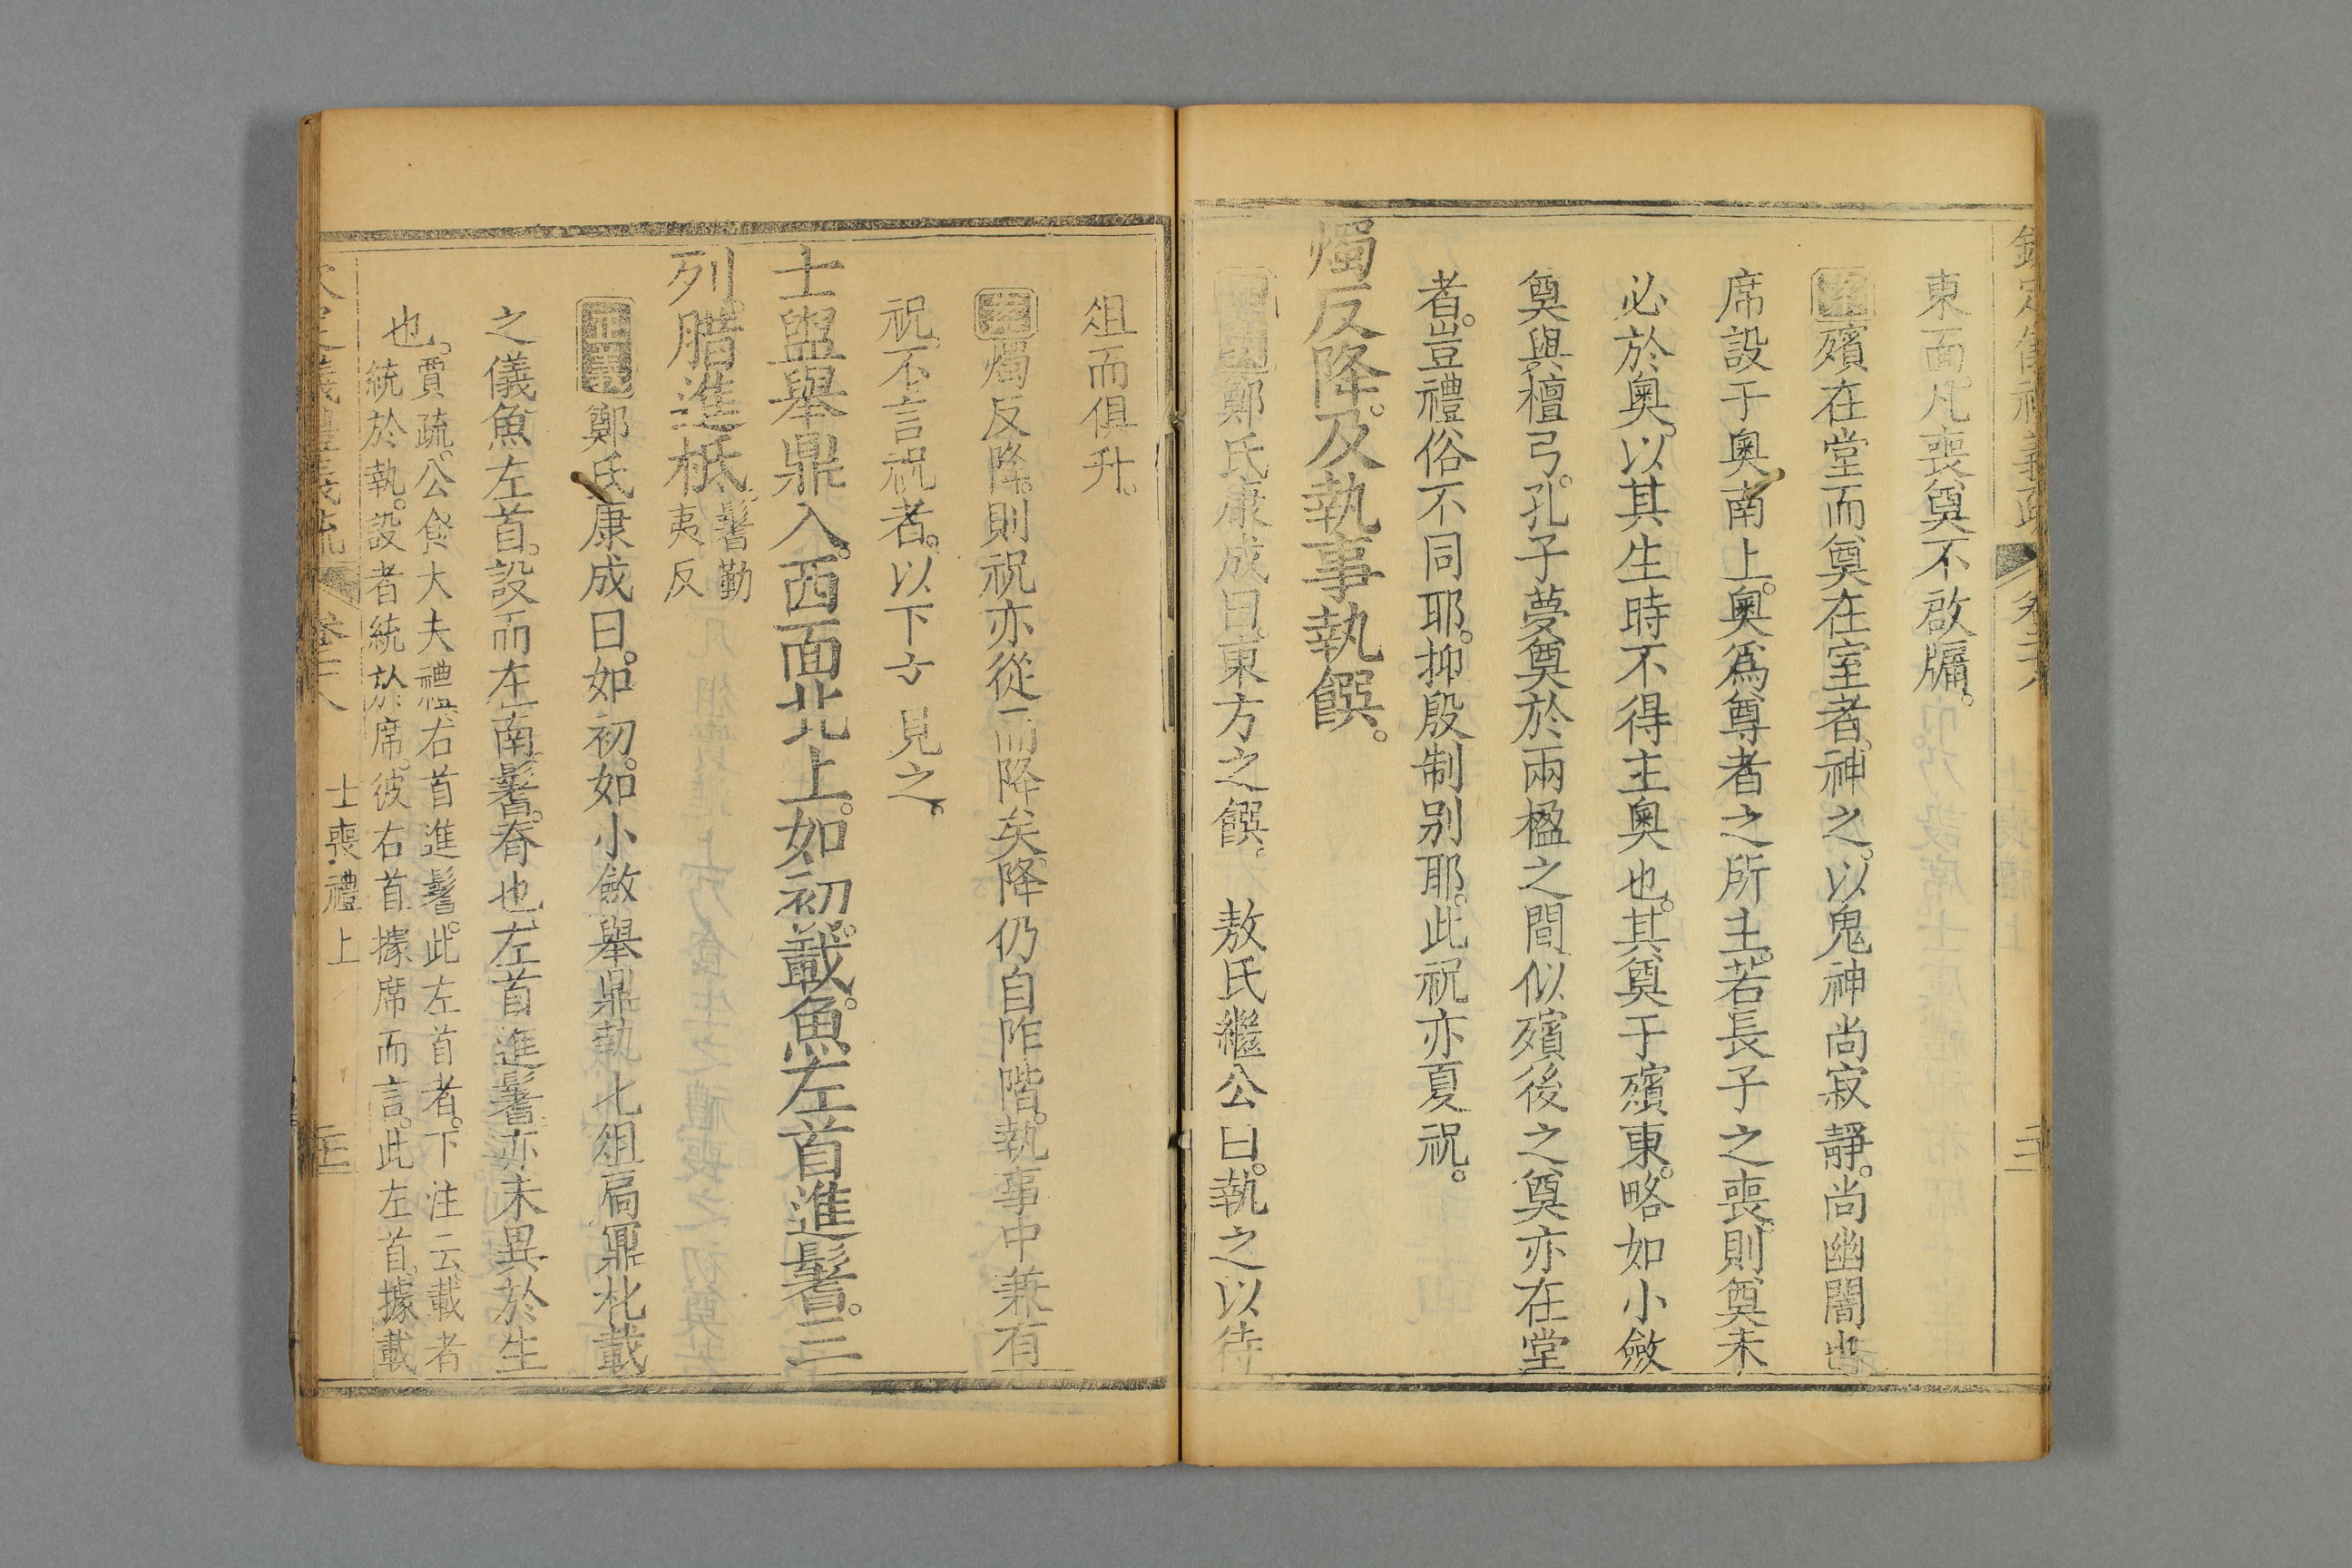 東面凡喪奠不啟牖。
案殯在堂而奠在室者。神之。以鬼神尚寂靜。尚幽闇也
席設于奧南上。奧爲尊者之所主。若長子之喪。則奠未
必於奧。以其生時不得主奧也。其奠于殯東。略如小斂
奠與檀弓。孔子夢奠於兩楹之間似殯後之奠亦在堂
者。豈禮俗不同耶。抑殷制別耶。此祝亦夏祝。
燭反降。及執事執饌。
鄭氏康成曰。東方之饌。 敖氏繼公曰。執之以待
俎而俱升。
案燭反降。則祝亦從而降矣。降仍自阼階。執事中兼有
祝。不言祝者。以下方見之。
士盥舉鼎入。西面北上。如初。載。魚左首進鬐。三
列。腊進柢。鬐勤
夷反
正義鄭氏康成曰。如初。如小斂舉鼎執匕俎扃鼏朼載
之儀魚左首。設而在南鬐。脊也。左首進鬐亦未異於生
也。賈疏。公食大夫禮。右首進鬐。此左首者。下注云。載者
統於執。設者統於席。彼右首據席而言。此左首。據載
士喪禮上